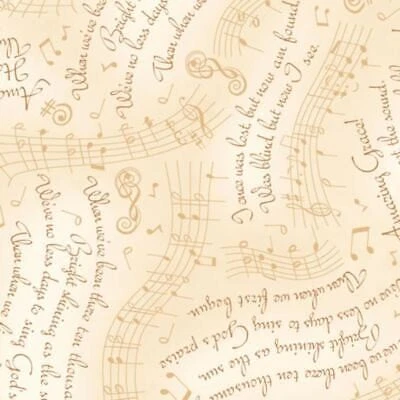 When we've been
Bright
We've no less days
Than when we
I once was lost but now am found
Was blind but now I see.
Amazing Grace!
the sound
When we've been there ten thousand
Bright shining as the sun
We've no less days to sing God's
Than when we
Than when we first begun
no less days to sing God's praise
Bright shining as the sun
we've been there ten thousand